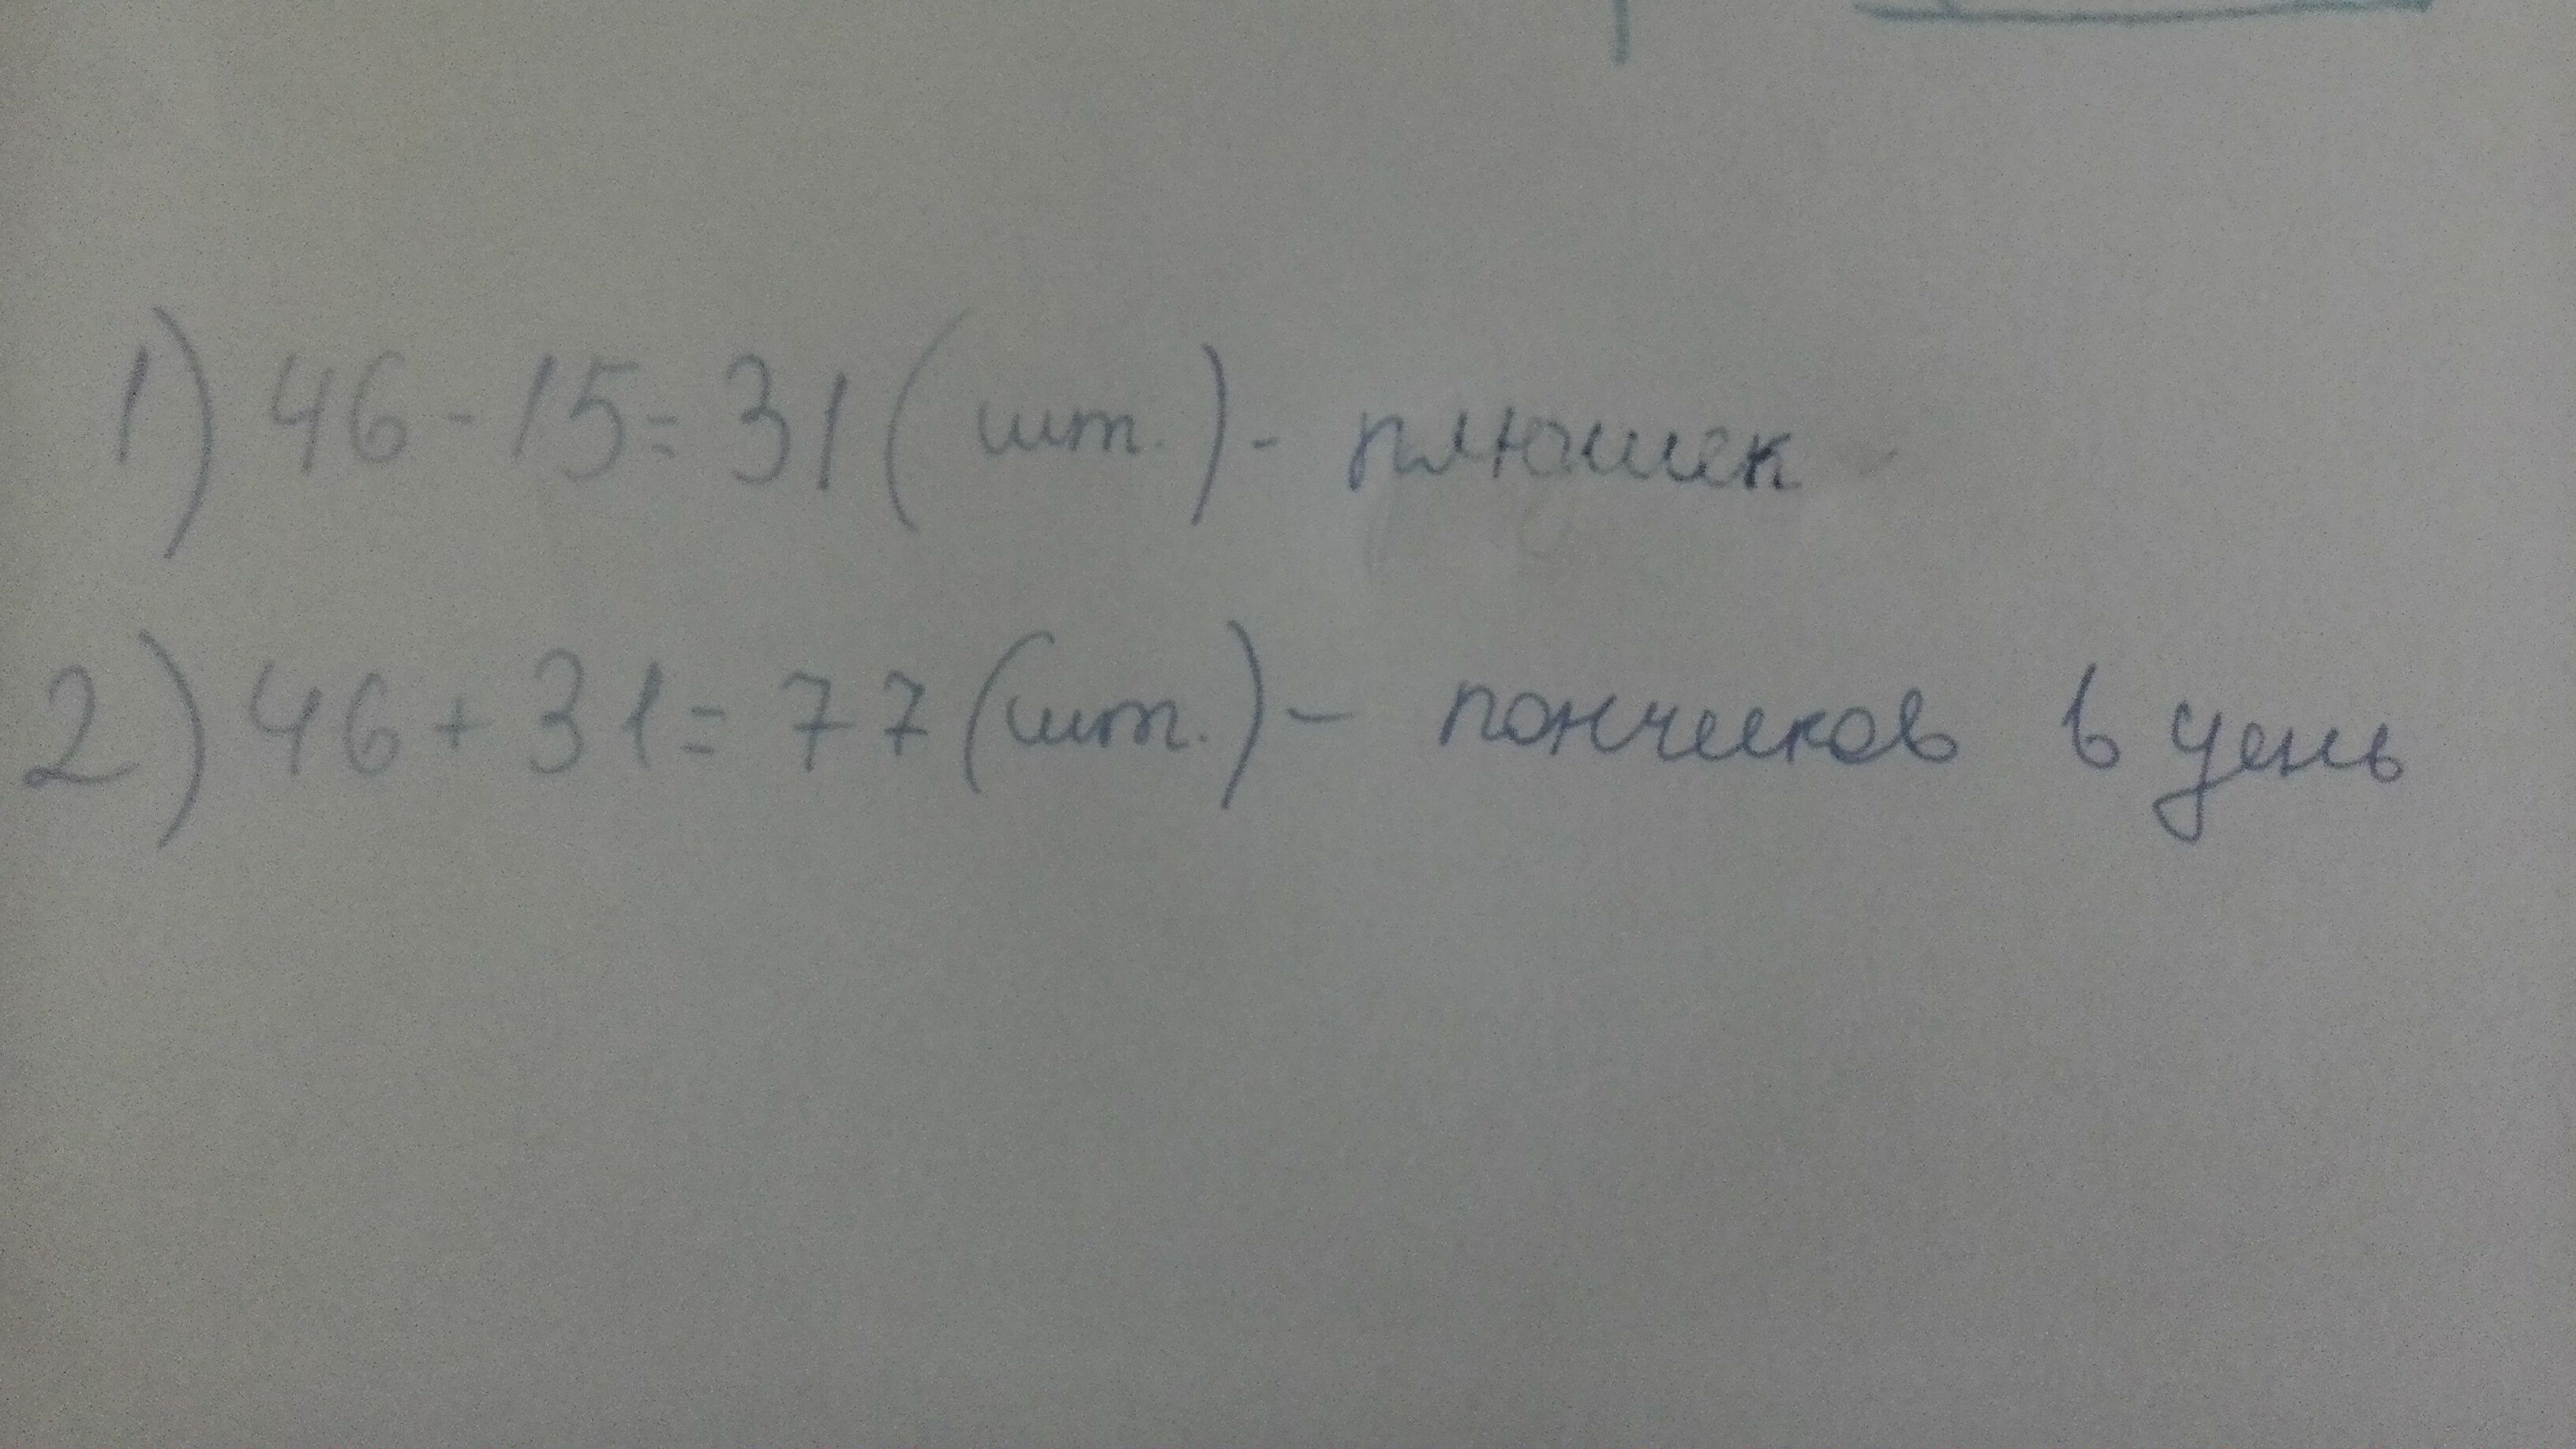 1) 46 - 15 = 31 (шт.) - плюшек
2) 46 + 31 = 77 (шт.) - пончиков в день